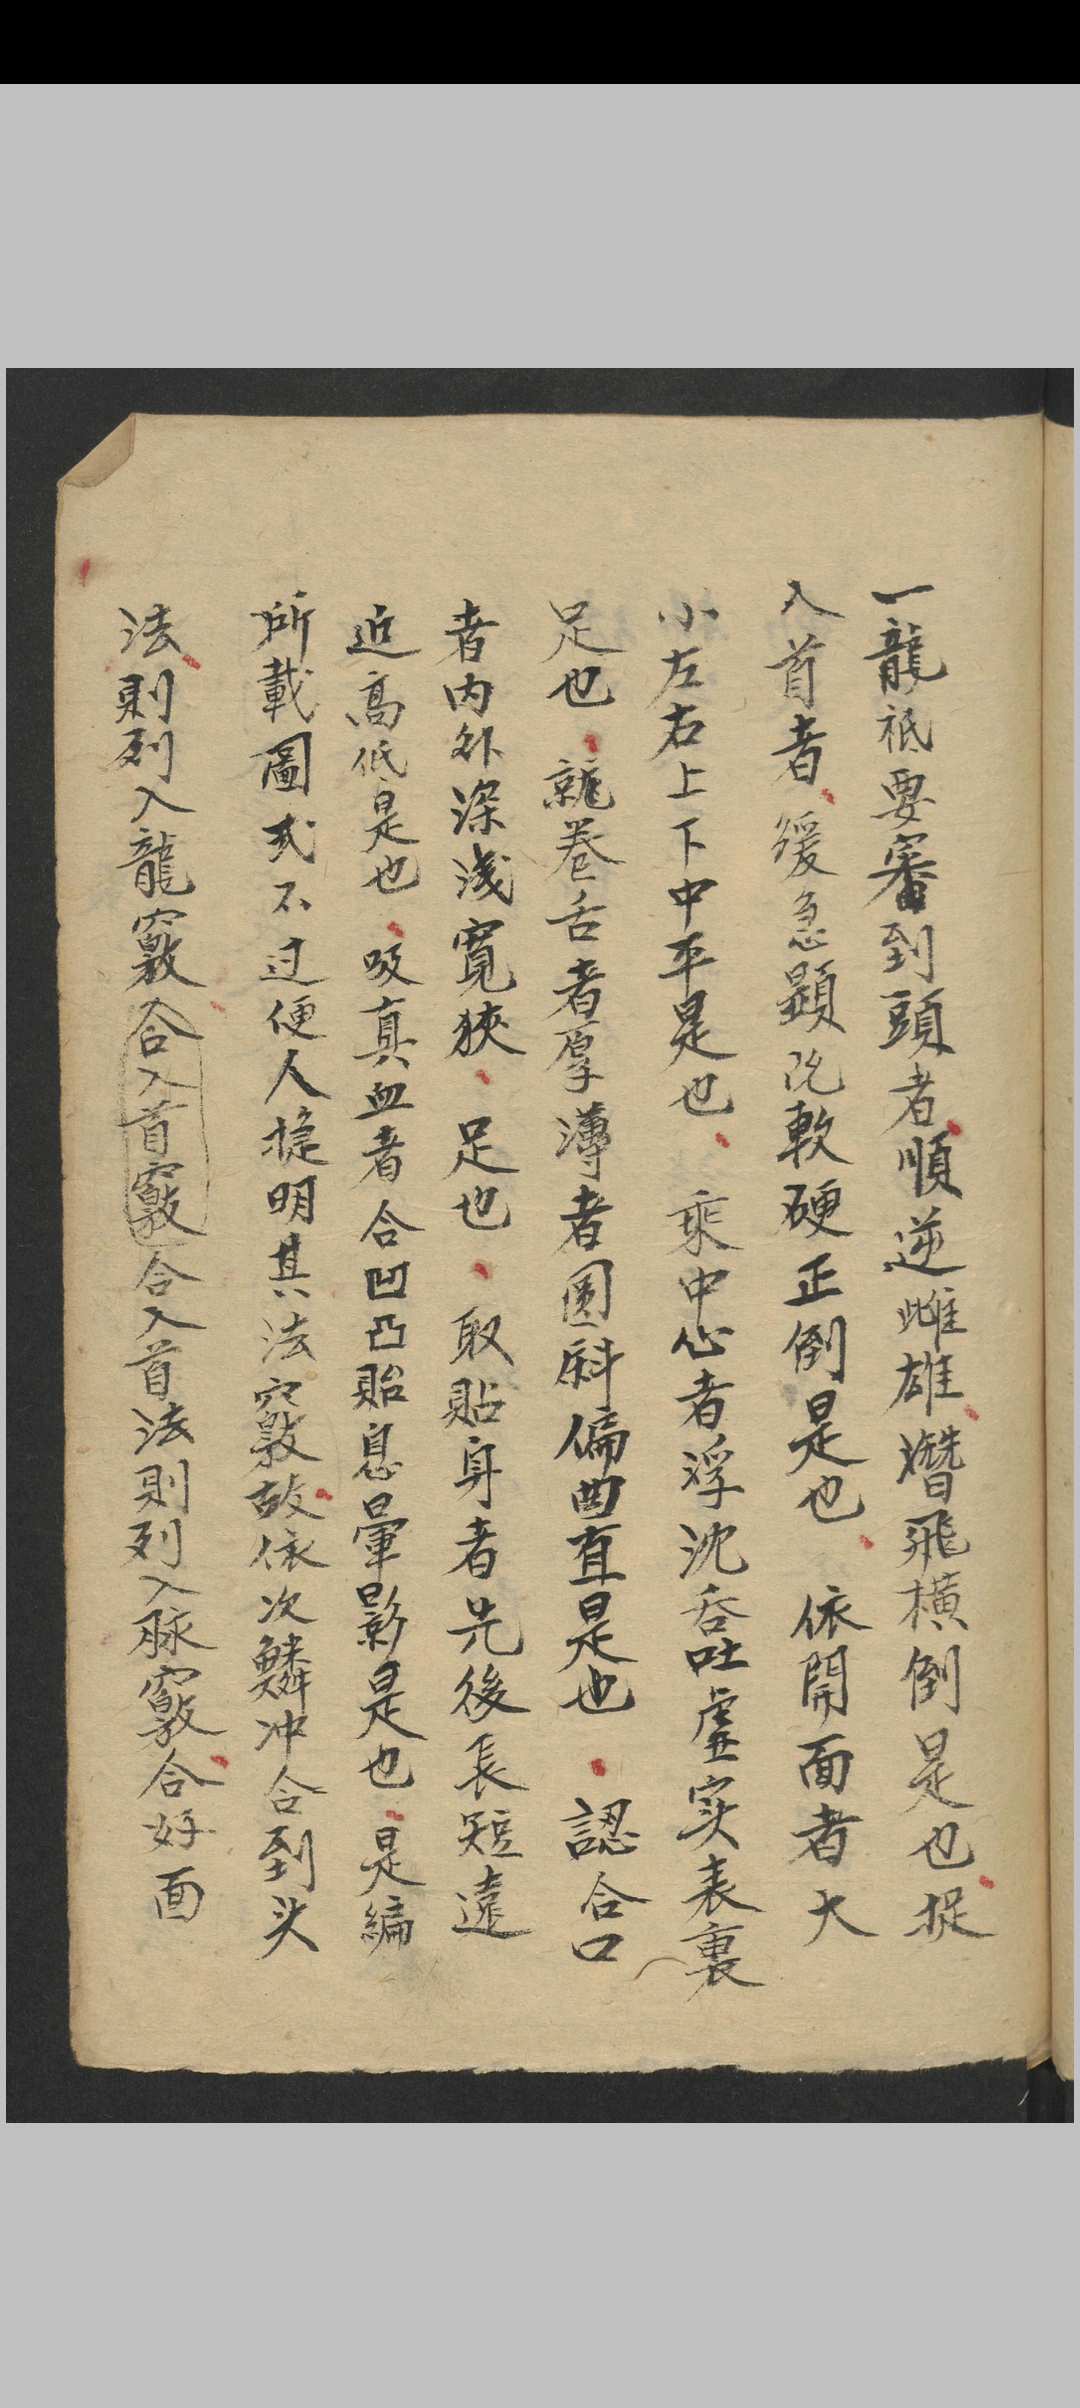 一龍祇要審到頭者順逆雌雄潛飛橫倒是也捉
入首者緩急顯沉軟硬正倒是也依開面者大
小左右上下中平是也乘中心者浮沈吞吐虛实表裏
足也就卷舌者厚薄者圓斜偏曲直是也認合口
者内外深淺寬狹足也取貼身者先後長短遠
近高低是也吸真血者合凹凸貽息暈影是也是編
所載圖式不过便人捉明其法竅故依次鱗冲合到头
法則列入龍竅合入首竅合入首法則列入脉竅合好面